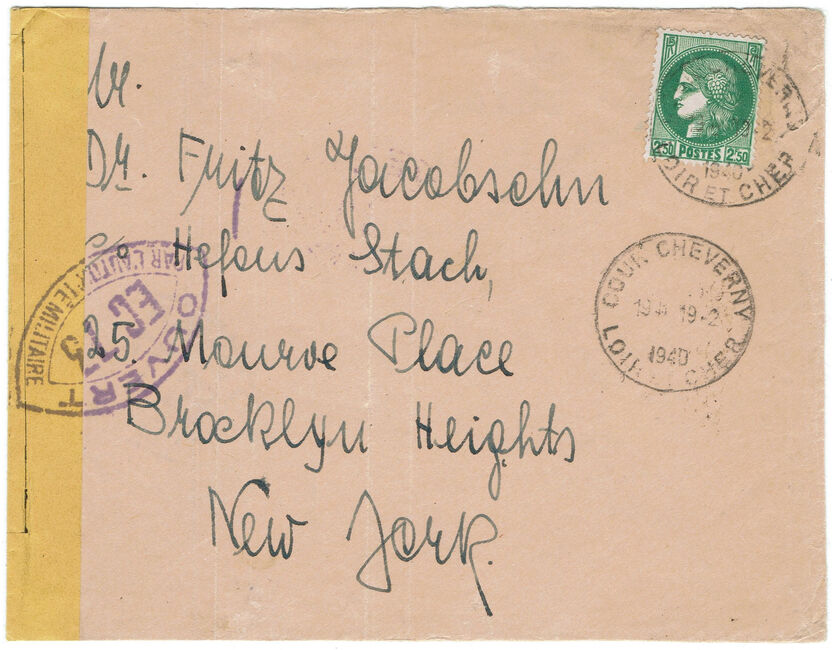 M.
Dr. Fritz Jacobsohn
c/o Hefous Stach,
25. Monroe Place
Brooklyn Heights
New York.
2F50 POSTES 2F50
19-2
1940
LOIR ET CHER
COUR CHEVERNY
19-2
1940
LOIR CHER
OUVERT
PAR L'AUTORITÉ MILITAIRE